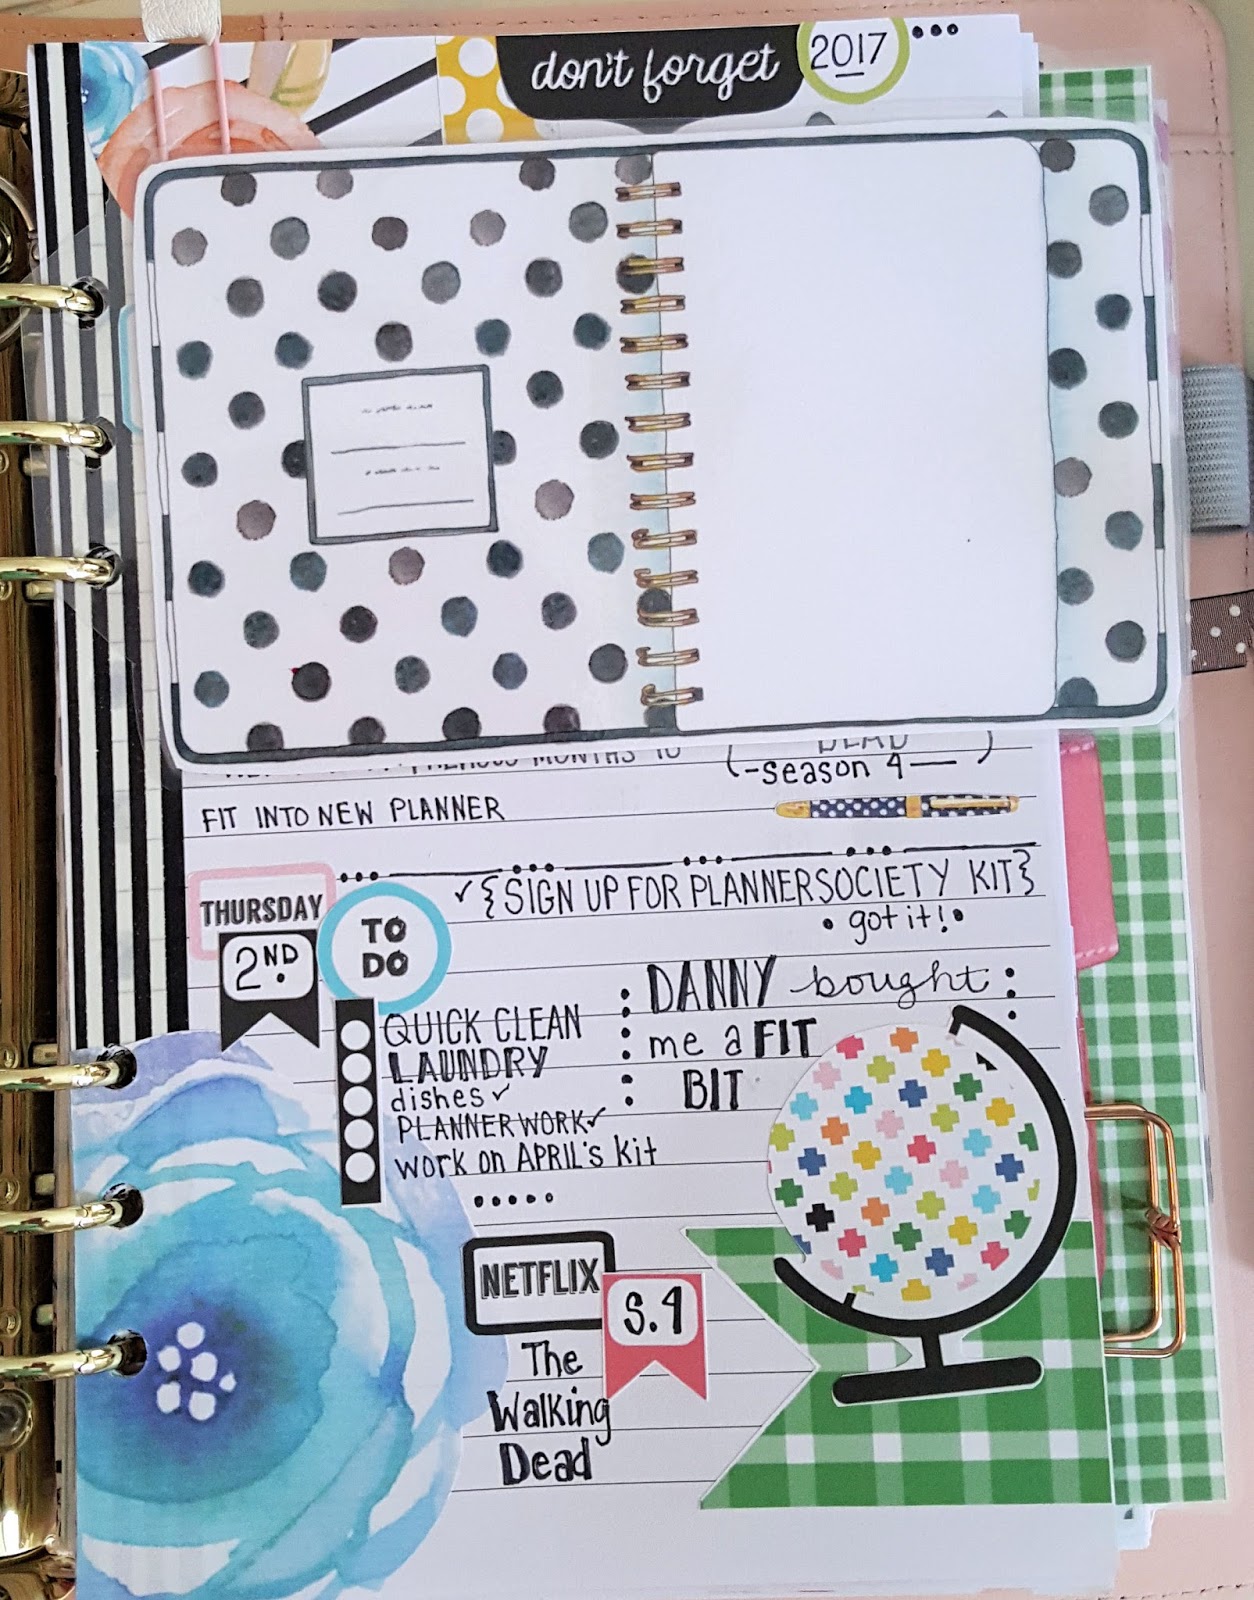 don't forget
2017
MONTHS TO
DEAD
season 4
FIT INTO NEW PLANNER
THURSDAY
2ND
TO
DO
✓ {SIGN UP FOR PLANNERSOCIETY KIT}
• got it! •
QUICK CLEAN
LAUNDRY
dishes ✓
PLANNER WORK ✓
work on APRIL's kit
DANNY bought
me a FIT
BIT
NETFLIX
S.4
The
Walking
Dead